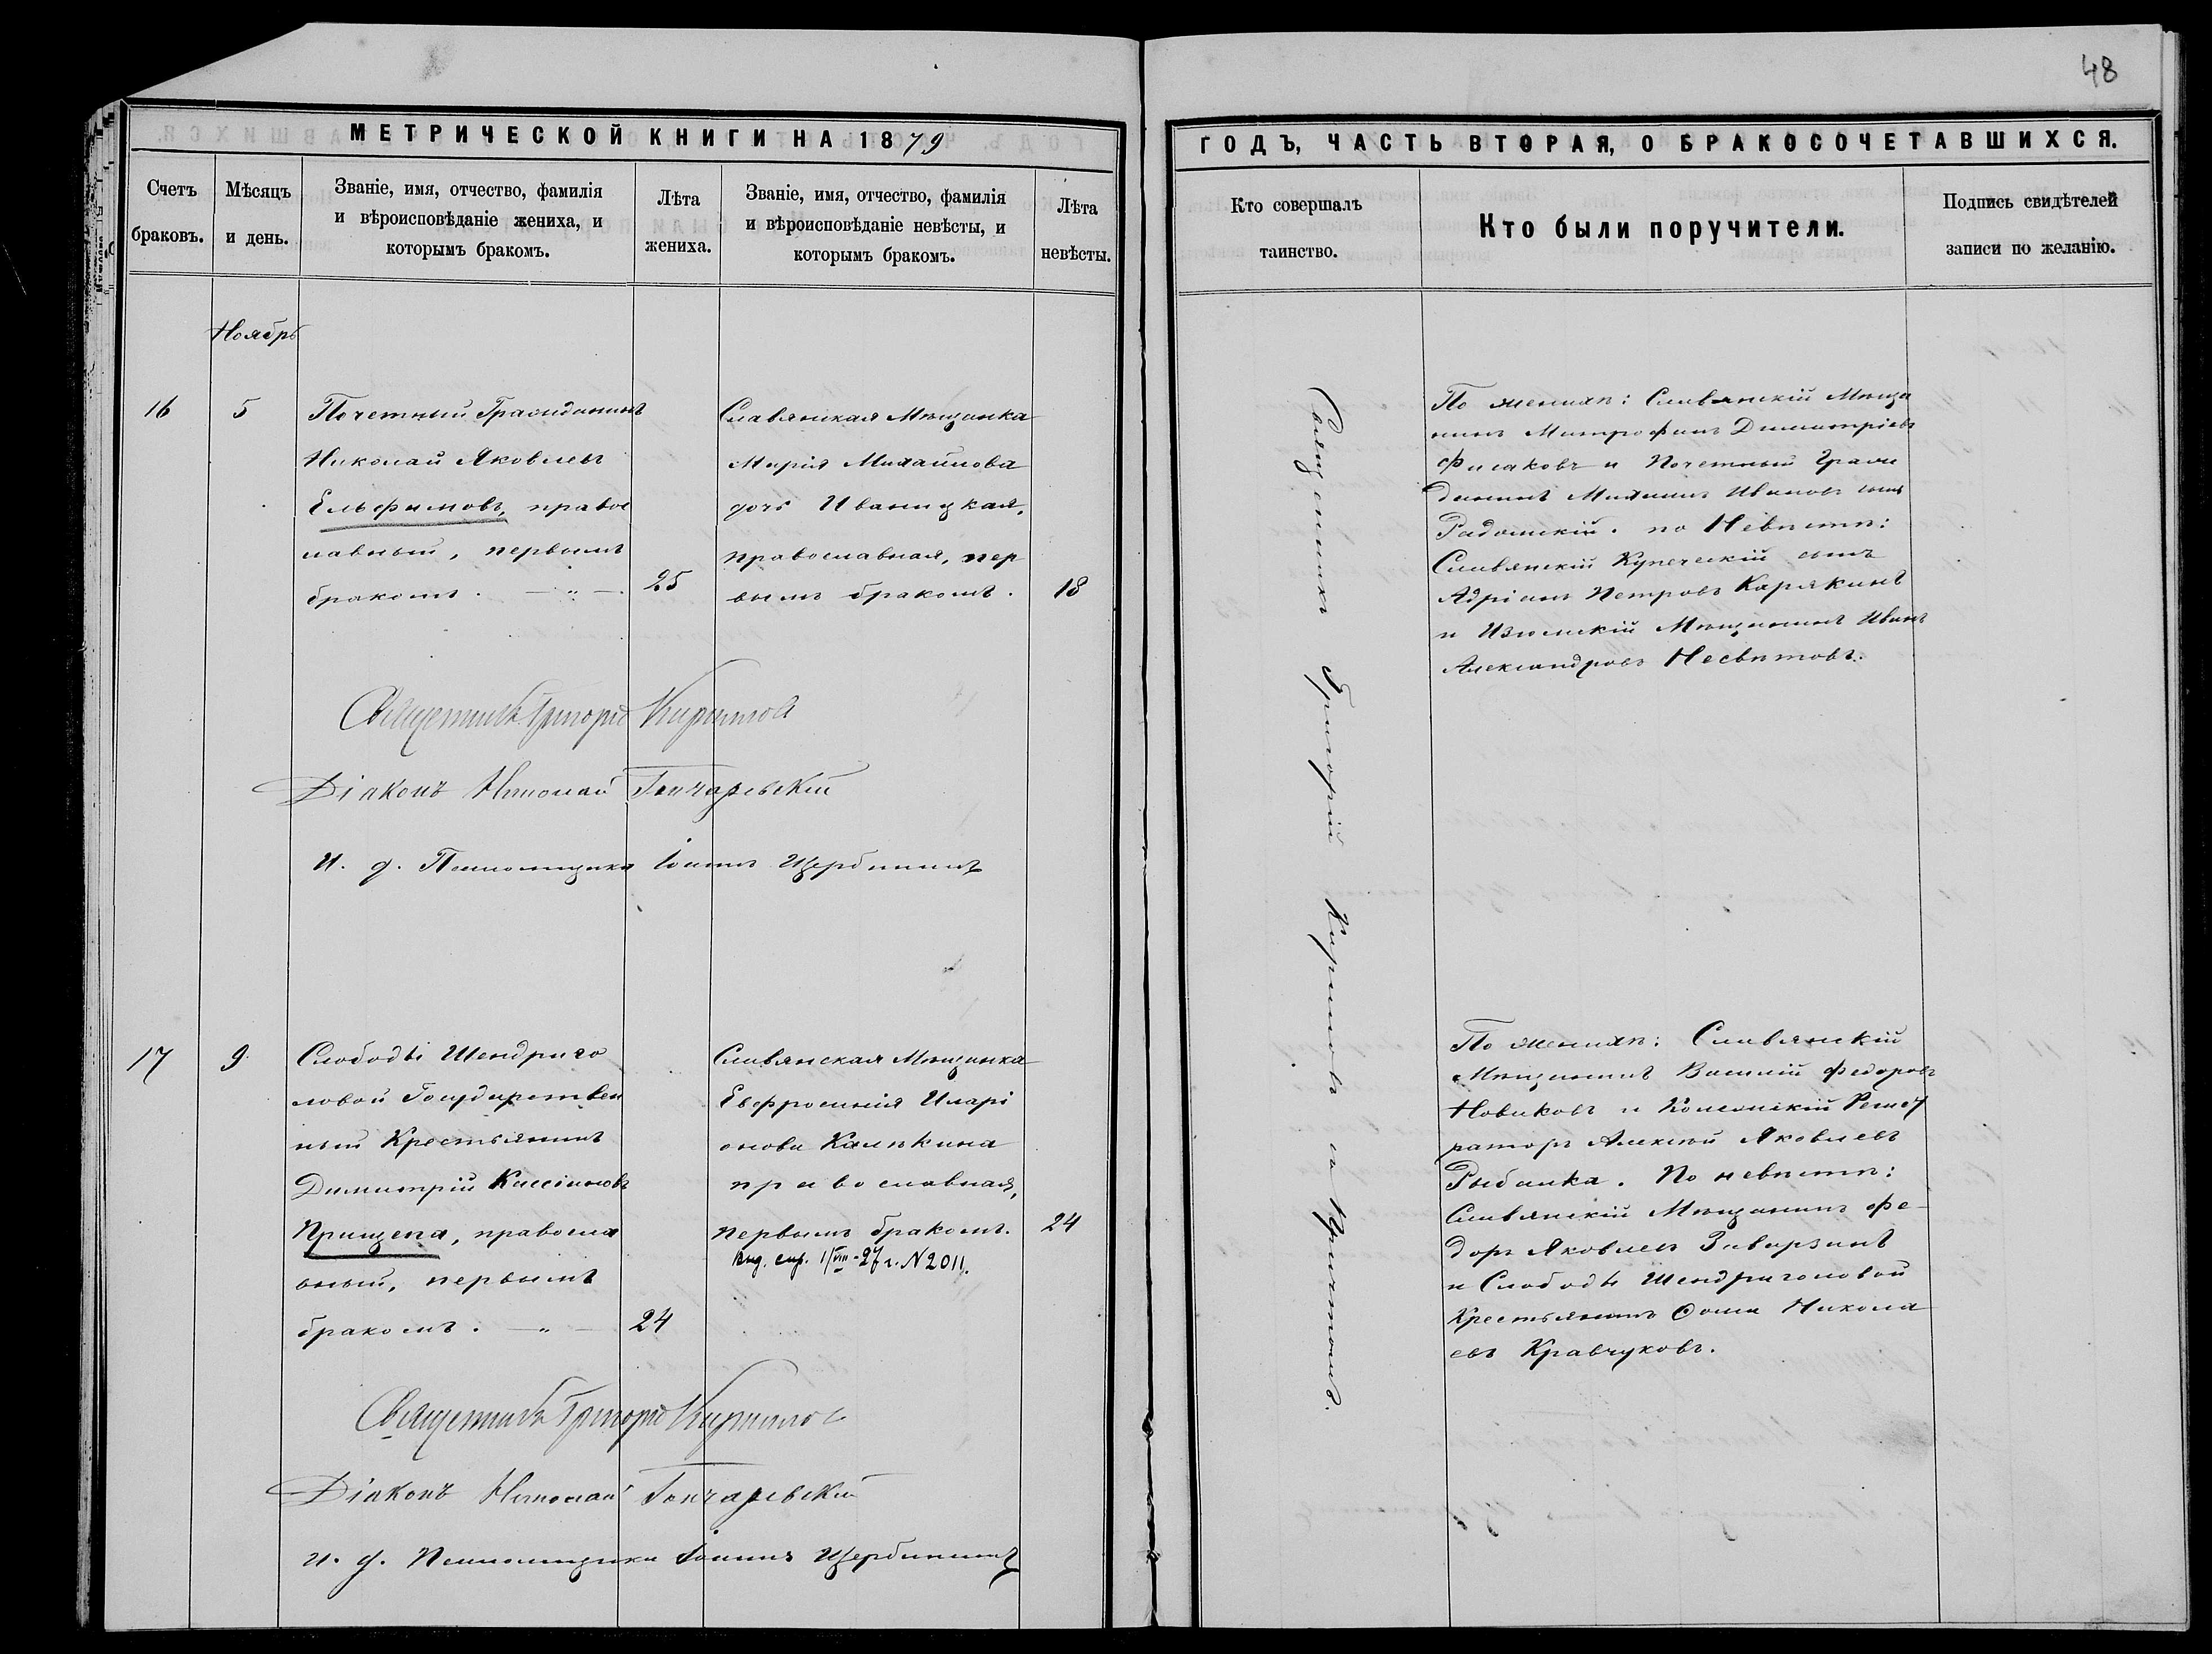 48
МЕТРИЧЕСКОЙ КНИГИ НА 1879
ГОДЪ, ЧАСТЬ ВТОРАЯ, О БРАКОСОЧЕТАВШИХСЯ.
Счетъ
браковъ.
Мѣсяцъ
и день.
Званіе, имя, отчество, фамилія
и вѣроисповѣданіе жениха, и
которымъ бракомъ.
Лѣта
жениха.
Званіе, имя, отчество, фамилія
и вѣроисповѣданіе невѣсты, и
которымъ бракомъ.
Лѣта
невѣсты.
Кто совершалъ
таинство.
Кто были поручители.
Подпись свидѣтелей
записи по желанію.
Ноябрь
16
5
Почетный Гражданинъ
Николай Яковлевъ
Ельфимовъ, правос
лавный, первымъ
бракомъ. — „ —
25
Славянская Мѣщанка
Марія Михайлова
дочь Иваницкая,
православная, пер
вымъ бракомъ.
18
Священникъ Григорій Кириловъ съ Причтомъ.
По женихѣ: Славянскій Мѣща
нинъ Митрофанъ Димитріевъ
Филаковъ и Почетный Граж
данинъ Михаилъ Ивановъ сынъ
Радомскій. по Невѣстѣ:
Славянскій Купеческій сынъ
Адріанъ Петровъ Карякинъ
и Изюмскій Мѣщанинъ Иванъ
Александровъ Несвѣтовъ.
Священникъ Григорій Кириловъ
Діаконъ Николай Гончаревскій
И. д. Псаломщика Іоаннъ Щербининъ
17
9
Слободы Шендриго
ловой Государствен
ный Крестьянинъ
Димитрій Кассіановъ
Прищепа, правосла
вный, первымъ
бракомъ. — „ —
24
Славянская Мѣщанка
Евфросинія Иларі
онова Калѣкина
православная,
первымъ бракомъ.
24
Выд. спр. 1/VIII-27 г. N 2011.
По женихѣ: Славянскій
Мѣщанинъ Василій Федоровъ
Новиковъ и Коллежскій Регист
раторъ Алексѣй Яковлевъ
Рыбалка. По невѣстѣ:
Славянскій Мѣщанинъ Фе-
доръ Яковлевъ Заварзинъ
и Слободы Шендриголовой
Крестьянинъ Ѳома Никола
евъ Кравчуковъ.
Священникъ Григорій Кириловъ
Діаконъ Николай Гончаревскій
И. д. Псаломщика Іоаннъ Щербининъ